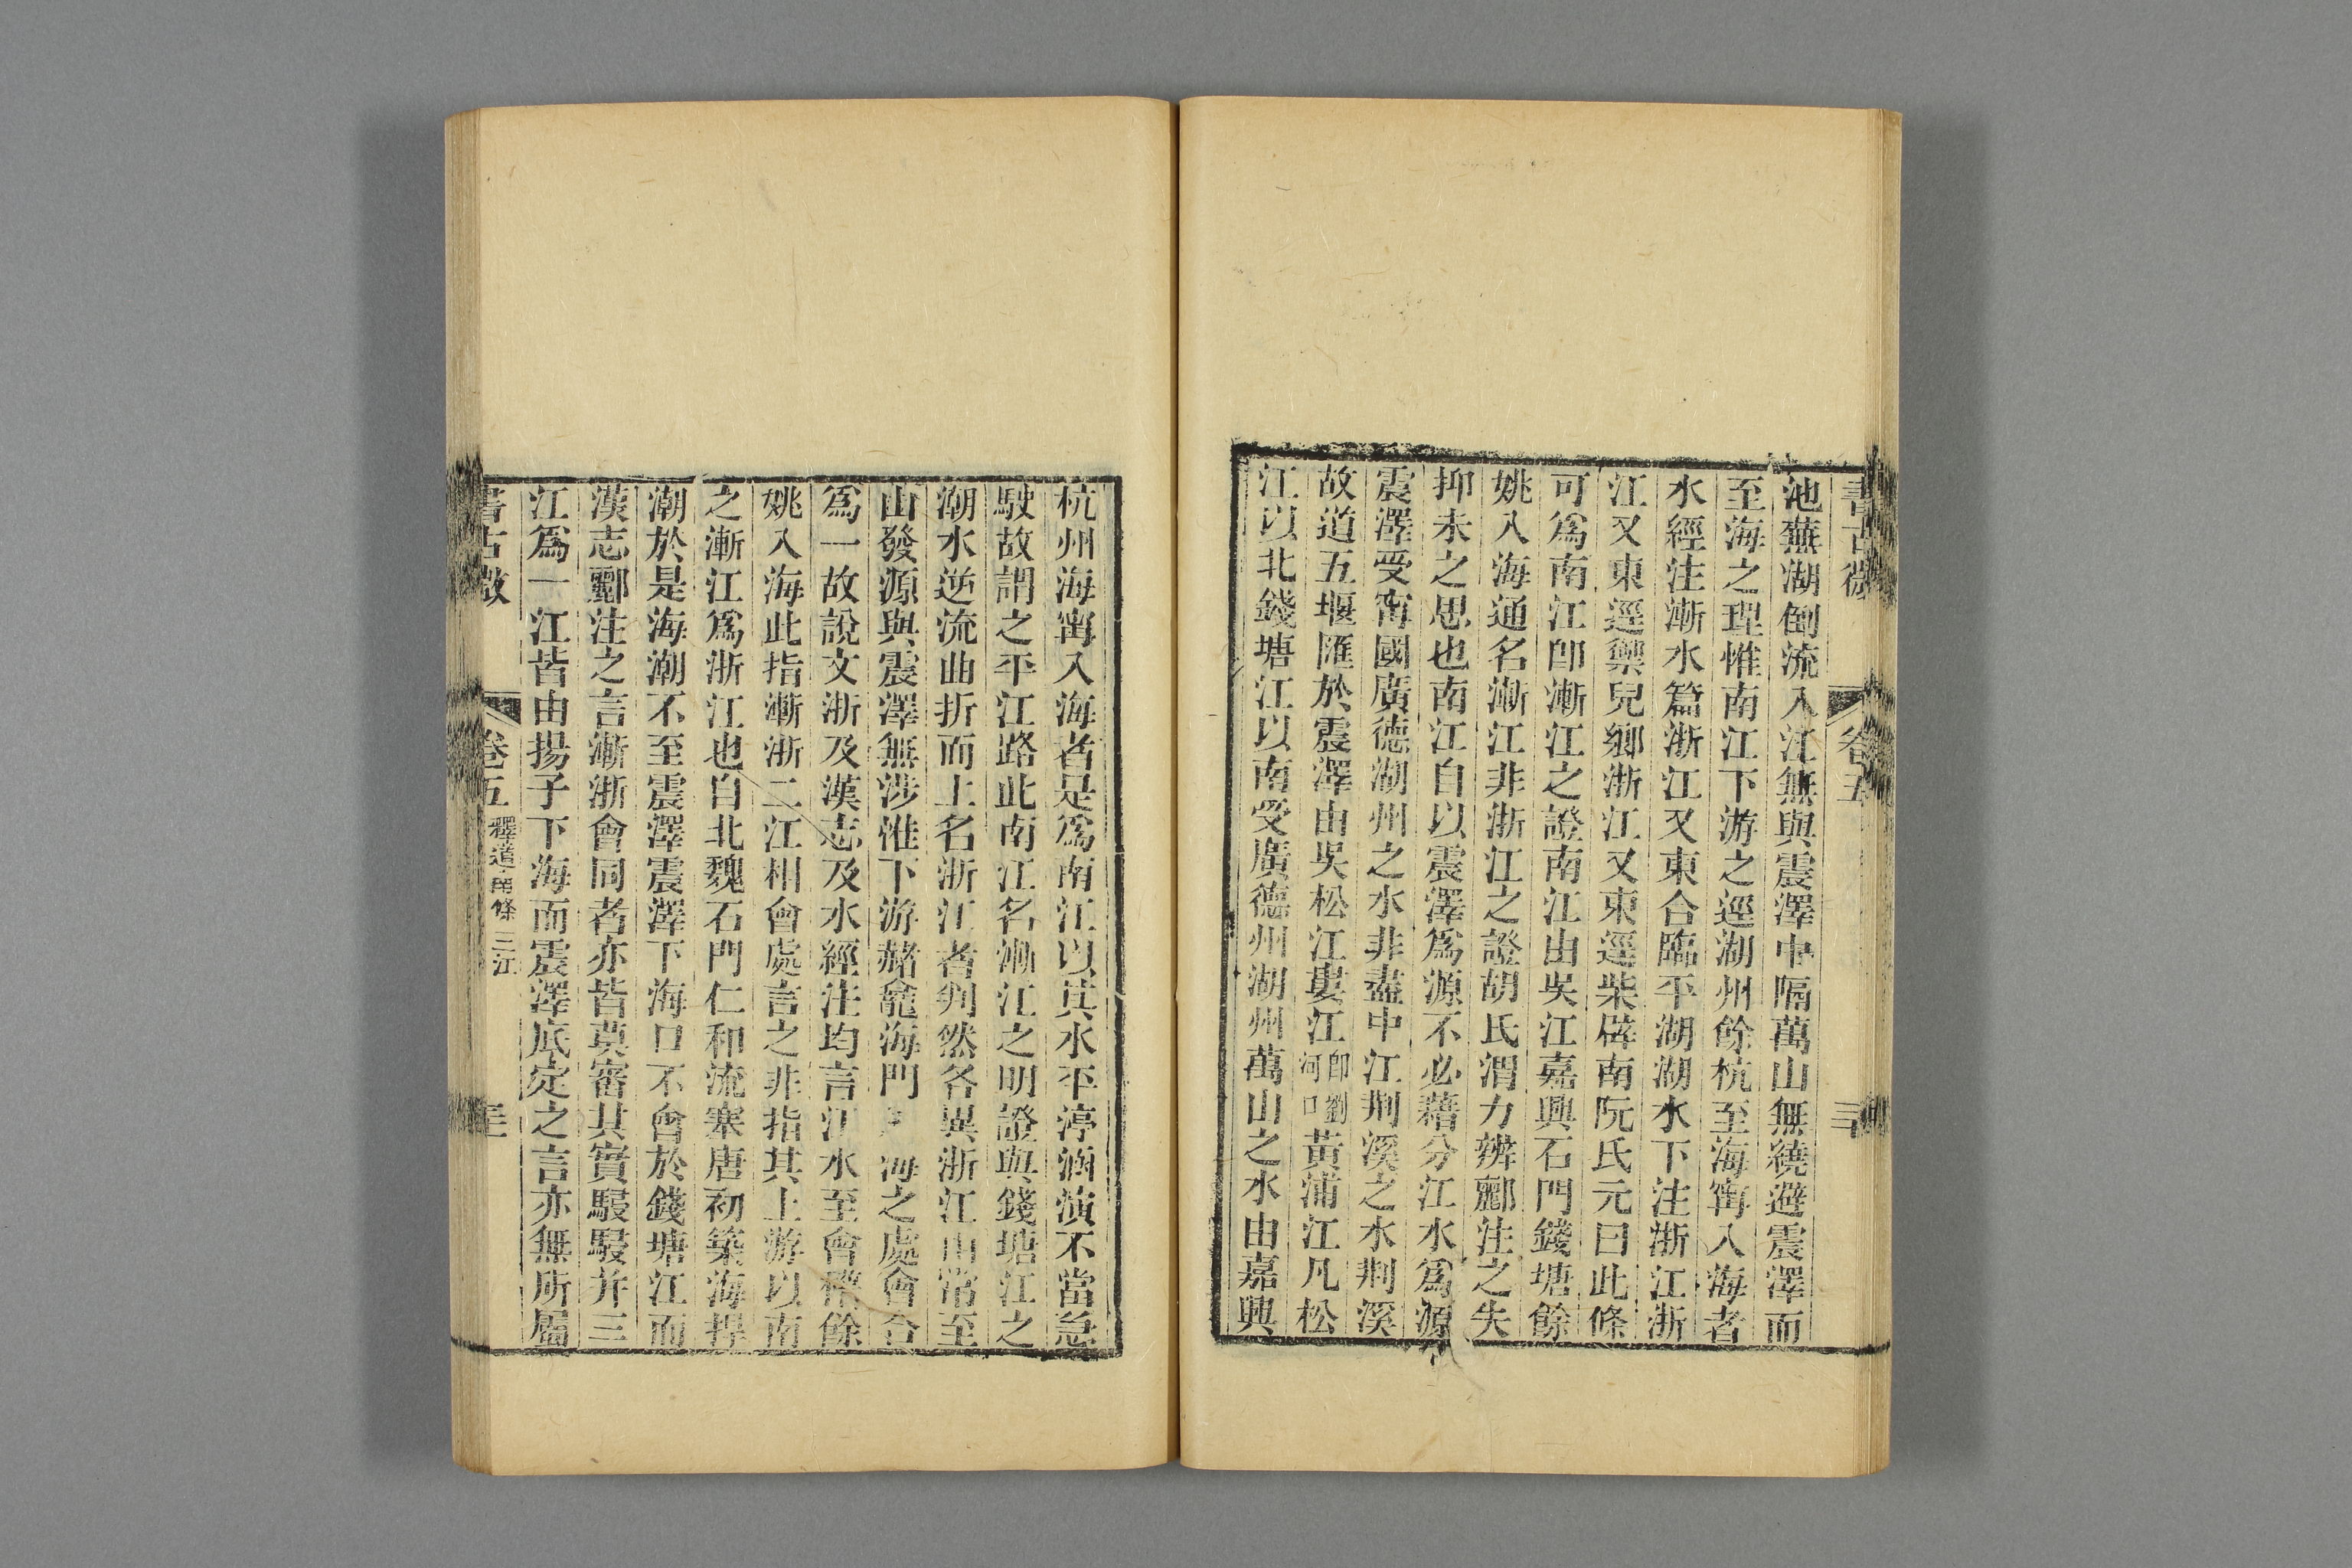 書古微 卷五
池蕪湖倒流入江無與震澤中隔萬山無繞避震澤而
至海之理惟南江下游之逕湖州餘杭至海甯入海者
水經注漸水篇浙江又東合臨平湖湖水下注浙江浙
江又東逕禦兒鄉浙江又東逕柴辟南阮氏元曰此條
可爲南江卽漸江之證南江由吳江嘉興石門錢塘餘
姚入海通名漸江非浙江之證胡氏渭力辨酈注之失
抑未之思也南江自以震澤爲源不必藉分江水爲源
震澤受甯國廣德湖州之水非盡中江荆溪之水荆溪
故道五堰匯於震澤由吳松江婁江卽劉河口黃浦江凡松
江以北錢塘江以南受廣德州湖州萬山之水由嘉興
杭州海甯入海者是爲南江以其水平渟涵演不當急
駛故謂之平江路此南江名漸江之明證與錢塘江之
潮水逆流曲折而上名浙江者判然各異浙江由常至
山發源與震澤無涉惟下游赭龕海門 海之處會合
爲一故說文浙及漢志及水經注均言江水至會稽餘
姚入海此指漸浙二江相會處言之非指其上游以南
之漸江爲浙江也自北魏石門仁和流塞唐初築海捍
潮於是海潮不至震澤震澤下海口不會於錢塘江而
漢志酈注之言漸浙會同者亦皆莫審其實駸駸并三
江爲一江皆由揚子下海而震澤底定之言亦無所屬
書古微 卷五 釋道南條三江